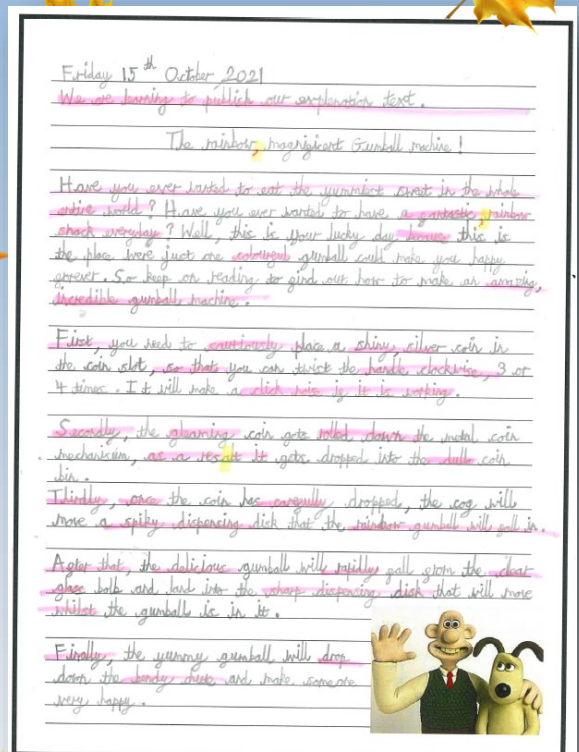 Friday 15th October 2021
We are learning to publish our explanation text.
The rainbow, magnificent Gumball machine!
Have you ever wanted to eat the yummiest sweet in the whole
entire world? Have you ever wanted to have a fantastic, rainbow
snack everyday? Well, this is your lucky day because this is
the place were just one colourful gumball could make you happy
forever. So keep on reading to find out how to make an amazing,
incredible gumball machine.
First, you need to cautiously place a shiny, silver coin in
the coin slot, so that you can twist the handle clockwise, 3 or
4 times. It will make a click noise if it is working.
Secondly, the gleaming coin gets rolled down the metal coin
mechanism, as a result it gets dropped into the dull coin
bin.
Thirdly, once the coin has carefully dropped, the cog will
move a spiky dispensing disk that the rainbow gumball will fall in.
After that, the delicious gumball will rapidly fall from the clear
glass bolb and land into the sharp dispensing disk that will move
whilst the gumball is in it.
Finally, the yummy gumball will drop
down the bendy and make someone
very happy.